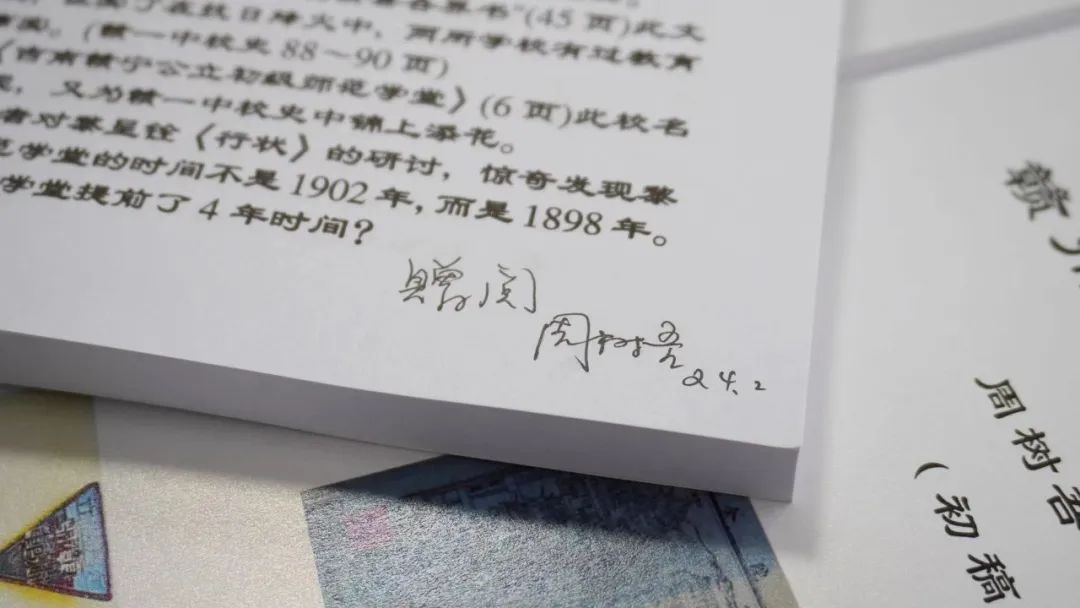 ”(45 页)此文
在抗日烽火中，两所学校有过教育
(赣一中校史 88～90 页)
《吉南赣宁公立初级师范学堂》(6 页)此校名
，又为赣一中校史中锦上添花。
者对蔡呈铨《行状》的研讨，惊奇发现蔡
学堂的时间不是 1902 年，而是 1898 年。
学堂提前了 4 年时间？
赠阅
周树吾
24.2
赣
周树吾
(初稿